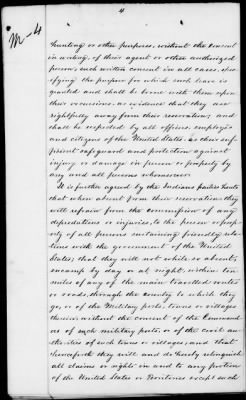 4
M-4
hunting or other purposes, without the consent
in writing of their agent or other authorized
person, such written consent in all cases, spec-
ifying the purpose for which such leave is
granted and shall be borne with them upon
their excursions, as evidence that they are
rightfully away from their reservations; and
shall be respected by all officers, employés
and citizens of the United States as their suf-
ficient safeguard and protection against
injury or damage in person or property by
any and all persons whomsoever.
It is further agreed by the Indians parties hereto
that when absent from their reservations they
will refrain from the commission of any
depredations or injuries to the person or prop-
erty of all persons sustaining friendly rela-
tions with the government of the United
States; that they will not while so absent,
encamp by day or at night, within ten
miles of any of the main travelled routes
or roads, through the country to which they
go, or of the Military posts, towns or villages
therein, without the consent of the Command-
ers of such military posts, or of the civil au-
thorities of such towns or villages; and that
henceforth they will and do hereby relinquish
all claims or rights in and to any portion
of the United States or Territories except such